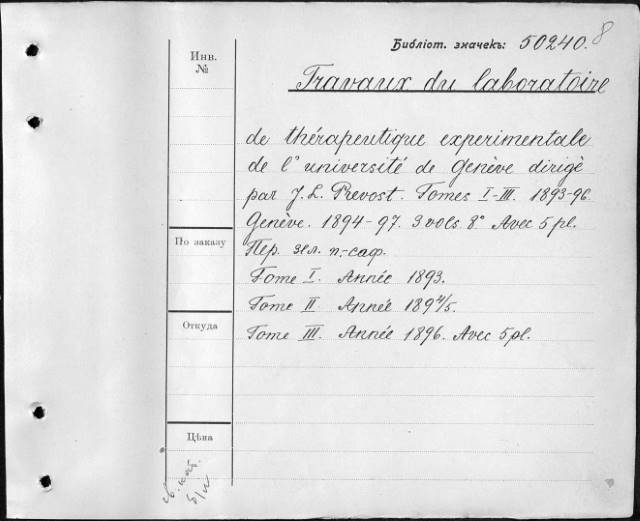 Библіот. значекъ: 50240. 8
Инв.
№
Travaux du laboratoire
de thérapeutique experimentale
de l'université de Genève dirigé
par J. L. Prevost. Tomes I-III. 1893-96.
Genève. 1894-97. 3 vols. 8° Avec 5 pl.
По заказу
Пер. зел. п.-саф.
Tome I. Année 1893.
Tome II Année 1894/5.
Откуда
Tome III. Année 1896. Avec 5 pl.
Цѣна